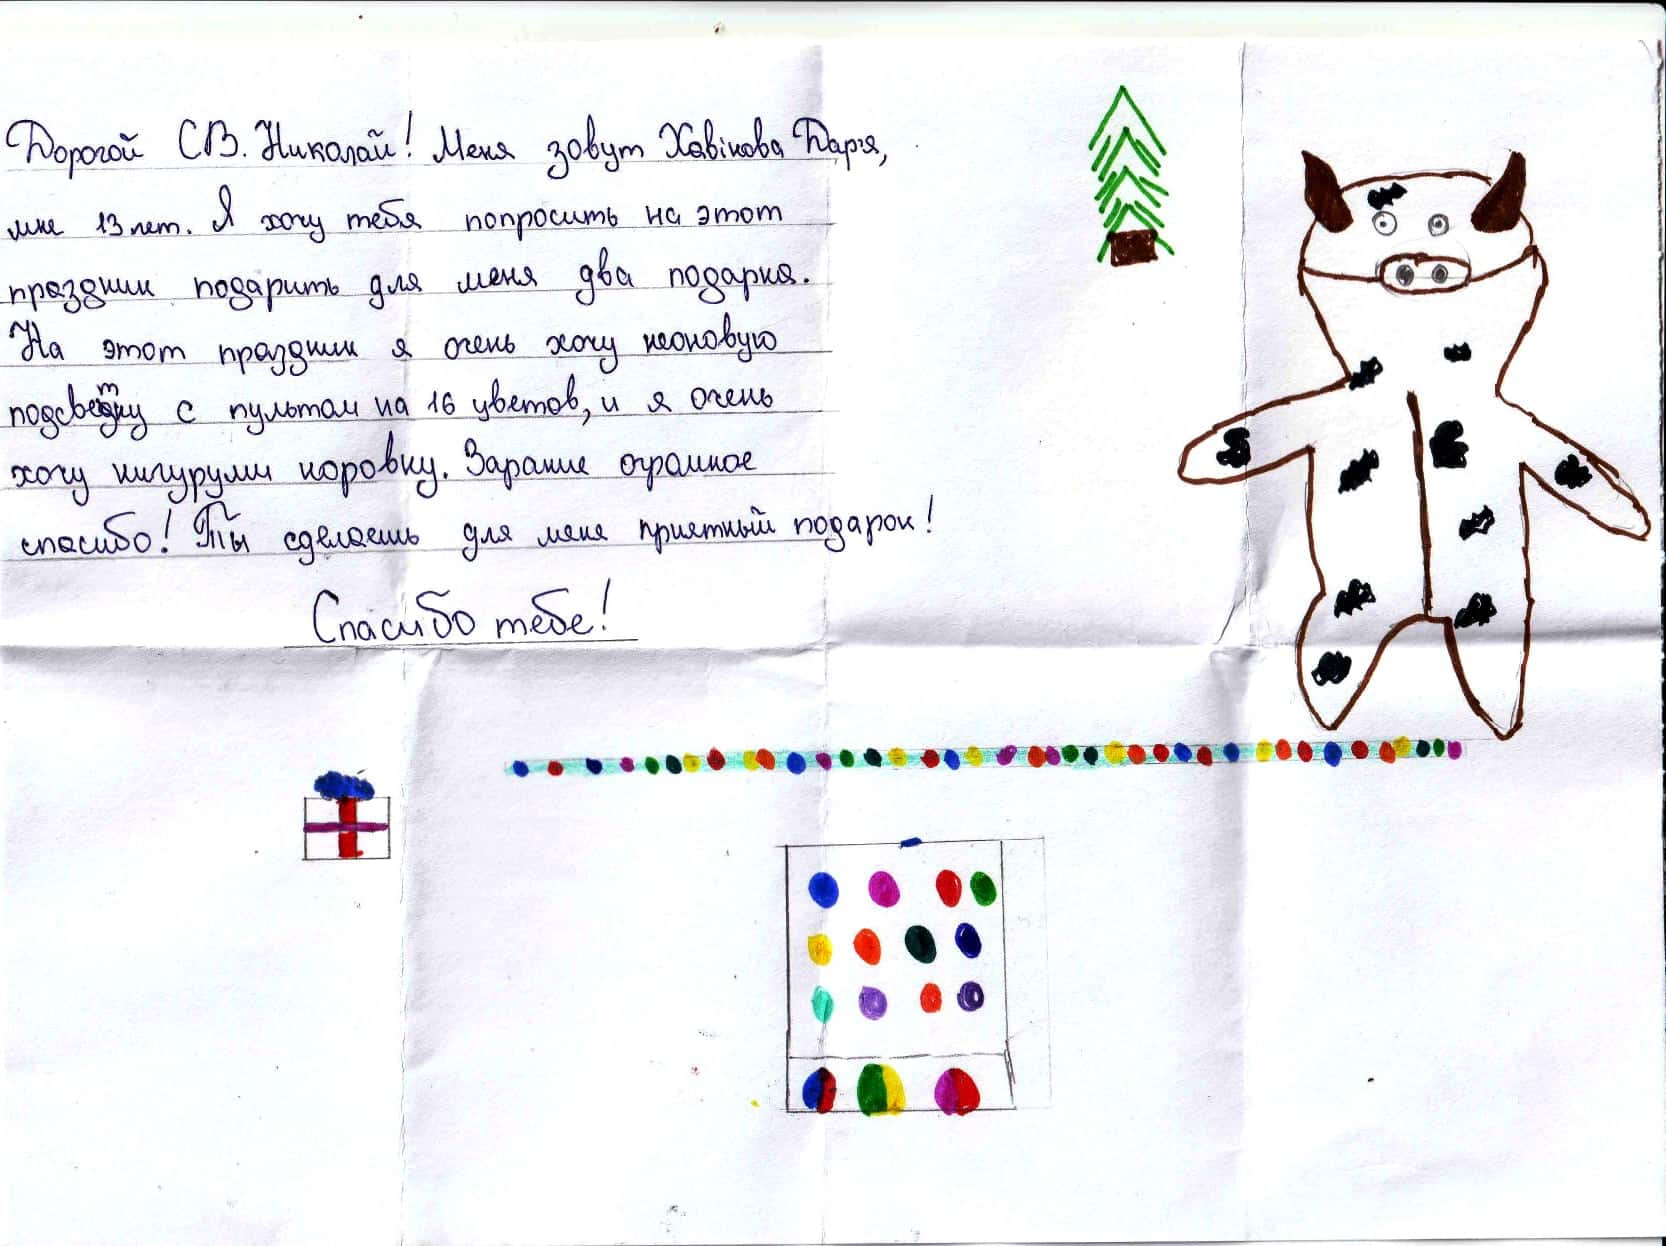 Дорогой СВ. Николай! Меня зовут Хавікова Дар'я,
мне 13 лет. Я хочу тебя попросить на этот
праздник подарить для меня два подарка.
На этот праздник я очень хочу неоновую
подсветку с пультом на 16 цветов, и я очень
хочу кигуруми коровку. Зарание огромное
спасибо! Ты сделаешь для меня приятный подарок!
Спасибо тебе!